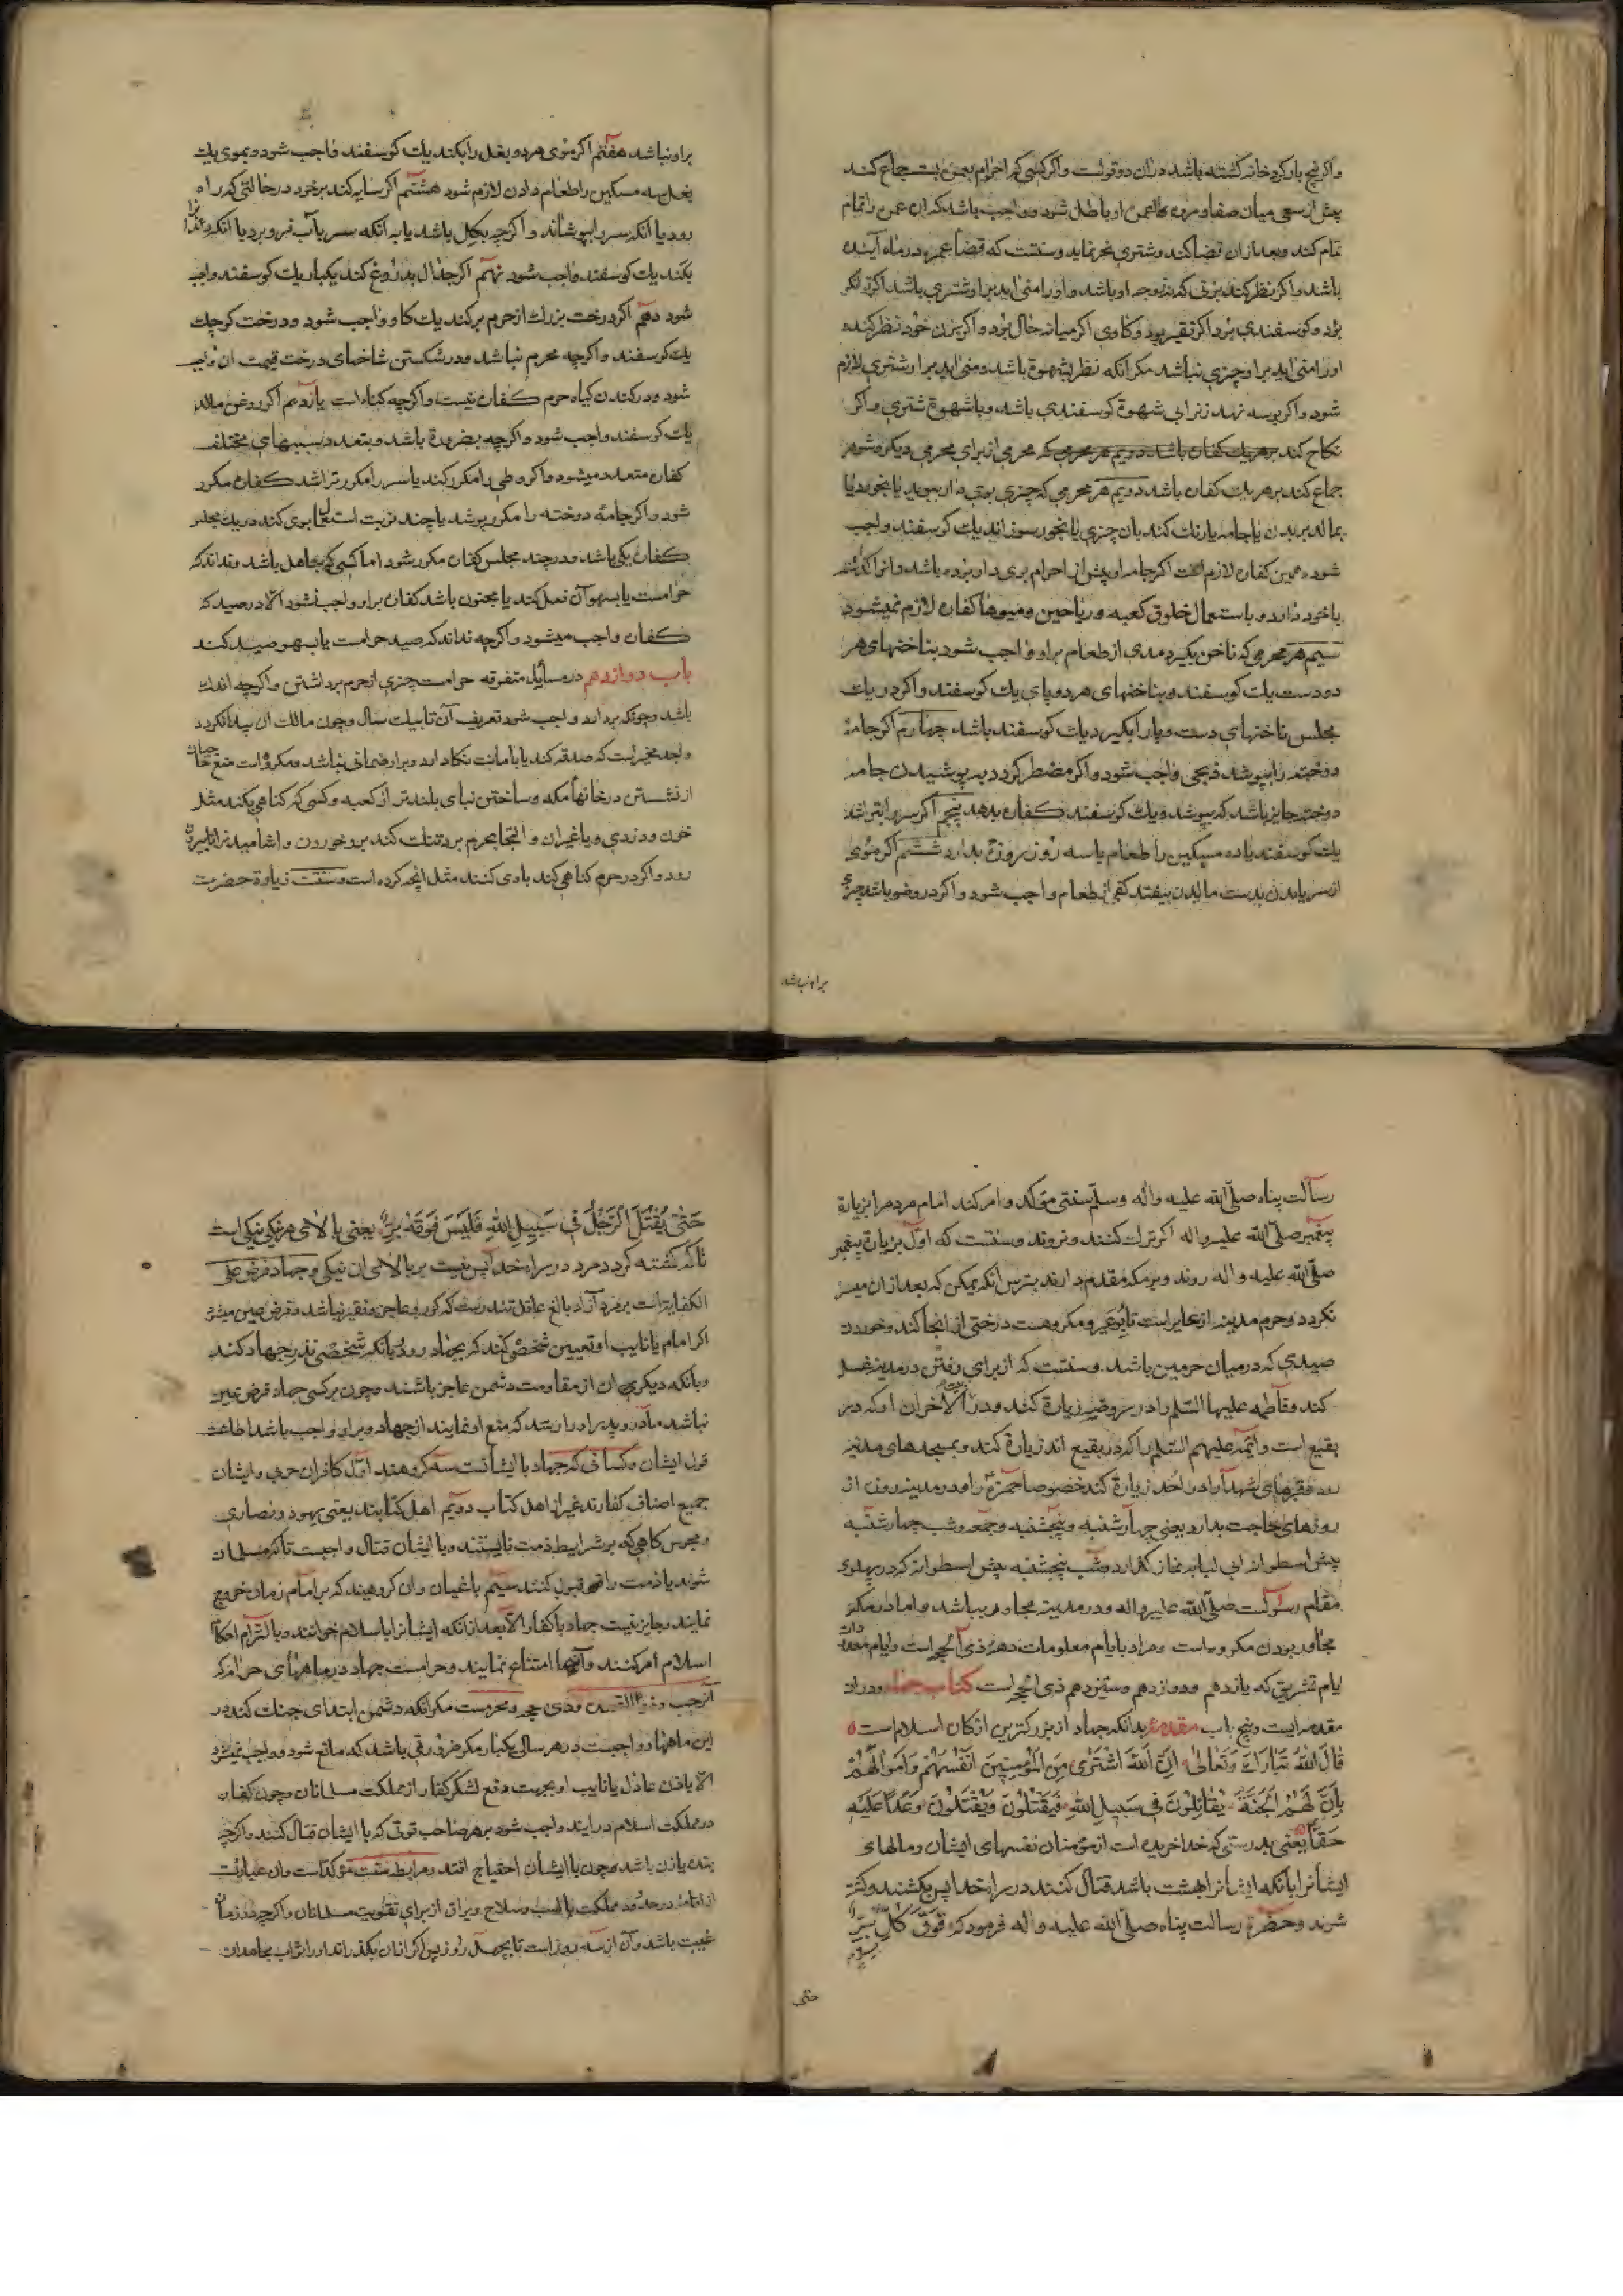 واکر پنج بار کرد خانه کشته باشد دران دو قولست واکر کسی که احرام بعمره بست جماع کند
پیش از سعی میان صفا و مروه عمره او باطل شود و واجب باشد که ان عمره را تمام
تمام کند و بعد ازان قضا کند و شتری نحر نماید و سنتست که قضا عمره در ماه آینده
باشد و اکر نظر کند بزنی که نه زوجه او باشد و او را منی اید بر او شتری باشد اکر توانکر
بود و کوسفندی بود اکر فقیر بود و کاوی اکر میانه حال بود و اکر بزن خود نظر کند و
او را منی اید بر او چیزی نباشد مکر آنکه نظر بشهوة باشد و منی اید بر او شتری لازم
شود و اکر بوسه نهد زنرا بی شهوة کوسفندی باشد و با شهوة شتری و اکر
نکاح کند بر هر یک کفاره باشد دویم هر محرمی که محرمی از برای محرمی دیکر و شوهر
جماع کند بر هر یک کفاره باشد دویم هر محرمی که چیزی بوی دار ببوید یا بخورد یا
بمالد بر بدن یا جامه یا رنک کند بان چیزی یا بخور سوزاند یک کوسفند واجب
شود و همین کفاره لازم است اکر جامه او پیش از احرام بوی دار بوده باشد و انرا
با خود دارد و باستعمال خلوق کعبه و ریاحین و میوها کفاره لازم نمیشود
سیم هر محرمی که ناخن بکیرد مدی از طعام بر او واجب شود بناخنهای هر
دو دست یک کوسفند و بناخنهای هر دو پای یک کوسفند و اکر در یک
مجلس ناخنهای دست و پا را بکیرد یک کوسفند باشد چهارم اکر جامهٔ
دوخته را بپوشد ذبحی واجب شود و اکر مضطر کردد به پوشیدن جامه
دوخته جایز باشد که بپوشد و یک کوسفند کفاره بدهد پنجم اکر سر را بتراشد
یک کوسفند یا ده مسکین را طعام یا سه روز روزه بدارد ششم اکر موی
از سر یا بدن بدست مالیدن بیفتد کفی از طعام واجب شود و اکر در وضو باشد چیزی
بر او نباشد
بر او نباشد هفتم اکر موی هر دو بغل را بکند یک کوسفند واجب شود و بموی یک
بغل سه مسکین را طعام دادن لازم شود هشتم اکر سایه کند بر خود در حالتی که راه
رود یا آنکه سر را بپوشاند و اکر چه بکل باشد یا به آنکه سر بآب فرو برد یا آنکه
بکند یک کوسفند واجب شود نهم اکر جدال بدروغ کند یکبار یک کوسفند واجب
شود دهم اکر درخت بزرک از حرم برکند یک کاو واجب شود و درخت کوچک
یک کوسفند و اکر چه محرم نباشد و در شکستن شاخهای درخت قیمت ان واجب
شود و در کندن کیاه حرم کفاره نیست و اکر چه کناه است یازدهم اکر روغن مالد
یک کوسفند واجب شود و اکر چه بضرورة باشد و بتعدد سببهای مختلف
کفاره متعدد میشود و اکر وطی را مکرر کند یا سر را مکرر تراشد کفاره مکرر
شود و اکر جامهٔ دوخته را مکرر پوشد یا چند نوبت استعمال بوی کند در یک مجلس
کفاره یکی باشد و در چند مجلس کفاره مکرر شود اما کسی که جاهل باشد و نداند که
حرامست یا بسهو آن فعل کند یا مجنون باشد کفاره بر او واجب نشود الا در صید که
کفاره واجب میشود و اکر چه نداند که صید حرامست یا بسهو صید کند
باب دوازدهم در مسایل متفرقه حرامست چیزی از حرم برداشتن و اکر چه اندک
باشد و چونکه بردارد واجب شود تعریف آن تا بیک سال و چون مالک ان پیدا نکردد
واجد مخیر است که صدقه کند یا بامانت نکاه دارد و بر او ضمانی نباشد و مکروه است منع حاجیان
از نشستن در خانهاء مکه و ساختن بنای بلندتر از کعبه و کسی که کناهی بکند مثل
خون و دزدی و یا غیر ان و التجا بحرم برد تنک کند بر و خوردن و اشامیدن تا بیرون
رود و اکر در حرم کناهی کند با وی کنند مثل آنچه کرده است و سنتست زیارة حضرت
رسالت پناه صلی الله علیه واله وسلم سنتی مؤکد و امر کند امام مردم را بزیارة
پیغمبر صلی الله علیه و اله اکر ترک کنند و نروند و سنتست که اول بزیارة پیغمبر
صلی الله علیه و اله روند و بر مکه مقدم دارند بترس انکه یمکن که بعد از ان میسر
نکردد و حرم مدینه از عایر است تا بوعیر و مکروهست درختی از انجا کند و خوردن
صیدی که در میان حرمین باشد و سنتست که از برای رفتن در مدینه غسل
کند و فاطمه علیها السلم را در روضه زیارة کند و در آخران او که در
بقیع است و ائمه علیهم السلم را که در بقیع اند زیارة کند و بمسجدهای مدینه
رود و قبرهای شهدا را در احد زیارة کند خصوصا حمزه را و در مدینه روزه از
روزهای حاجت بدارد یعنی چهارشنبه و پنجشنبه و جمعه و شب چهارشنبه
پیش اسطوانه ابی لبابه نماز کذارد و شب پنجشنبه پیش اسطوانه که در پهلوی
مقام رسولست صلی الله علیه واله و در مدینه مجاور باشد و اما در مکه
مجاور بودن مکروه است و مراد بایام معلومات دههٔ ذی الحجه است و ایام معدودات
ایام تشریق که یازدهم و دوازدهم و سیزدهم ذی الحجه است کتاب جهاد و دران
مقدمه ایست و پنج باب مقدمهٔ بدانکه جهاد از بزرکترین ارکان اسلام است
قال الله تبارک وتعالی ان الله اشتری من المؤمنین انفسهم واموالهم
بان لهم الجنة یقاتلون فی سبیل الله فیقتلون ویقتلون وعدا علیه
حقا یعنی بدرستی که خدا خریده است از مؤمنان نفسهای ایشان و مالهای
ایشانرا بانکه ایشانرا بهشت باشد قتال کنند در راه خدا پس بکشند و کشته
شوند و حضرة رسالت پناه صلی الله علیه و اله فرمود که فوق کل بر بر
حتی
حَتّی یُقْتَلَ الرَّجُلُ فی سَبیلِ اللهِ فَلَیْسَ فَوقَهُ بِرٌّ یعنی بالای هر نیکی نیکی است
تا که کشته کردد مرد در راه خدا پس نیست بر بالای ان نیکی و جهاد فرض علی
الکفایة است بر مرد آزاد بالغ عاقل تندرست که کور و عاجز و فقیر نباشد و فرض عین میشود
اکر امام یا نایب او تعیین شخصی کند که بجهاد رود یا آنکه شخصی نذر جهاد کند
و یا انکه دیکری ان از مقاومت دشمن عاجز باشند و چون بر کسی جهاد فرض عین
نباشد مادر و پدر او را رسد که منع او نمایند از جهاد و بر او واجب باشد اطاعت
قول ایشان و کسانی که جهاد با ایشانست سه کروهند اول کافران حربی و ایشان
جمیع اصناف کفارند غیر از اهل کتاب دویم اهل کتابند یعنی یهود و نصاری
و مجوس کاهی که بر شرایط ذمت نایستند و با ایشان قتال واجبست تا که مسلمان
شوند یا ذمت را قبول کنند سیم باغیان و ان کروهیند که بر امام زمان خروج
نمایند و جایز نیست جهاد با کفار الا بعد از انکه ایشانرا باسلام خوانند و بالتزام احکام
اسلام امر کنند و آنها امتناع نمایند و حرامست جهاد در ماههای حرام که
آن رجب و ذو القعده و ذی حجه و محرمست مکر انکه دشمن ابتدای جنک کند در
این ماهها و واجبست در هر سالی یکبار مکر ضرورتی باشد که مانع شود و واجب نمیشود
الا باذن عادل یا نایب او بجهت دفع لشکر کفار از مملکت مسلمانان و چون کفار
در مملکت اسلام در ایند واجب شود بر هر صاحب قوتی که با ایشان قتال کنند و اکر چه
بنده یا زن باشد و چون با ایشان احتیاج افتد و مرابطه سنت مؤکد است و ان عبارتست
از اقامت در حدود مملکت با اسب و سلاح و یراق از برای تقویت مسلمانان و اکر چه در زمان
غیبت باشد و آن از سه روز است تا بچهل روز پس اکر از ان بکذراند او را ثواب مجاهدان